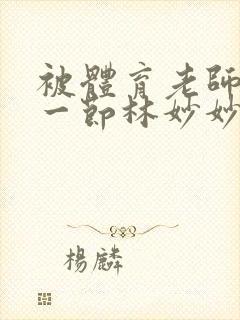 被體育老師
一節林妙妙
楊麟